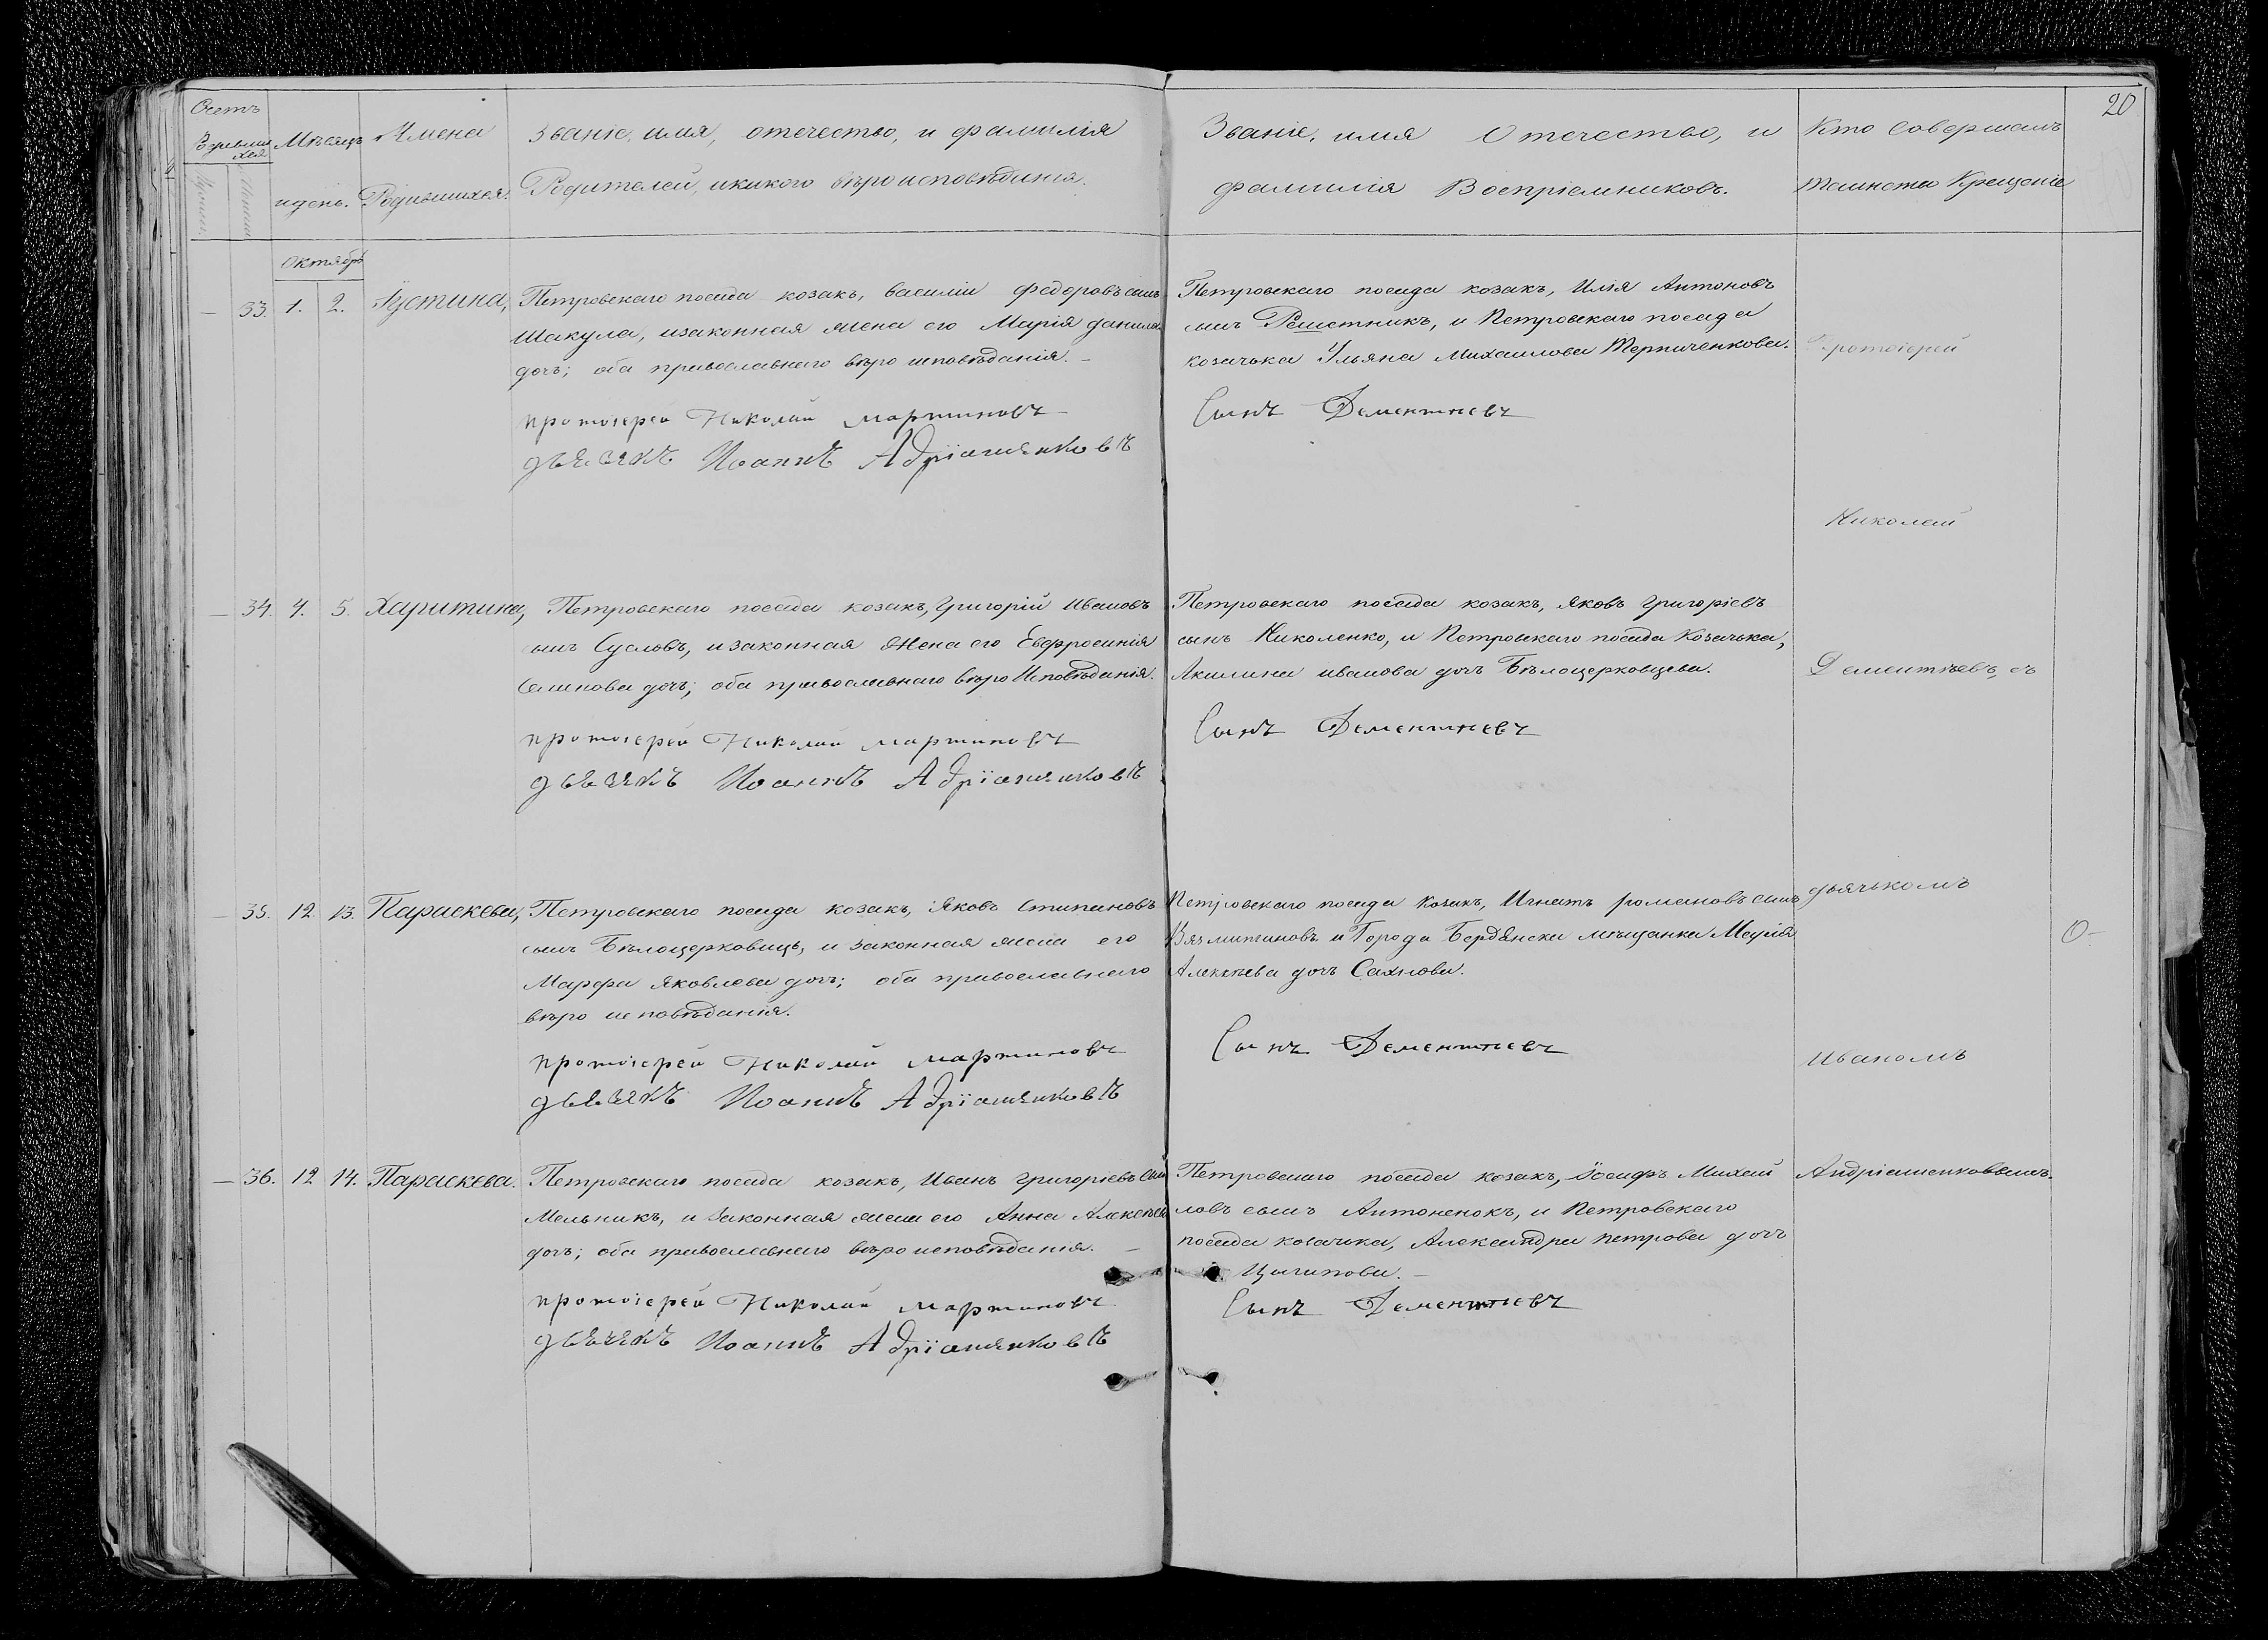 20
Счетъ
Родивших
ся
Мѣсяцъ
и день.
Имена
Родившихся.
Званіе, имя, отечество, и фамилія
Родителей, и какого вѣроисповѣданія.
Званіе, имя Отечество, и
фамилія Воспріемниковъ.
Кто совершалъ
таинство Крещеніе
Октябрь
— 33. 1. 2. Іустина,
Петровскаго посада козакъ, василіи федоровъ сынъ
Шакула, изаконная жена его Марія данила
дочь; оба православнаго вѣро исповѣданія. —
протоіерей Николай мартиновъ
дьячокъ Иоаннъ Адріашенковъ
Петровскаго посада козакъ, Илія Антоновъ
сынъ Решетникъ, и Петровскаго посада
козачька Ульяна Михаилова Терпиченкова.
Сынъ Дементиевъ
Протоіерей
Николай
— 34. 4. 5. Харитина,
Петровскаго посада козакъ, григорій Ивановъ
сынъ Сусловъ, изаконная Жена его Евфросинія
Семинова дочъ; оба православнаго вѣро Исповѣданія.
протоіерей Николай мартиновъ
дьячекъ Иоаннъ Адріашенковъ
Петровскаго посада козакъ, яковъ григоріевъ
сынъ Николенко, и Петровскаго посада Козачька,
Акилина иванова дочъ Бѣлоцерковцева.
Сынъ Дементиевъ
Дементѣевъ, съ
— 35. 12. 13. Параскева,
Петровскаго посада козакъ, Яковъ Стипановъ
сынъ Бѣлоцерковицъ, и законная жена его
Марфа яковлева дочь; оба православнаго
вѣро исповѣданія.
протоіерей Николай мартиновъ
дьячекъ Иоаннъ Адріашенковъ
Петровскаго посада Козакъ, Игнатъ романовъ сынъ
и Города Бердянска мѣщанка Марія
Алексѣева дочъ Сахнова.
Сынъ Дементиевъ
дьячькомъ
О-
Иваномъ
— 36. 12 14. Параскева.
Петровскаго посада козакъ, Иванъ григоріевъ сынъ
Мельникъ, и законная жена его Анна Алексѣева
дочъ; оба православнаго вѣро исповѣданія. —
протоіерей Николай мартиновъ
дьячекъ Иоаннъ Адріашенковъ
Петровскаго посада козакъ, Іосифъ Михаи
ловъ сынъ Антоненокъ, и Петровскаго
посада козачька, Александра петрова дочъ
Цыганова. —
Сынъ Дементиевъ
Андріашенковымъ.